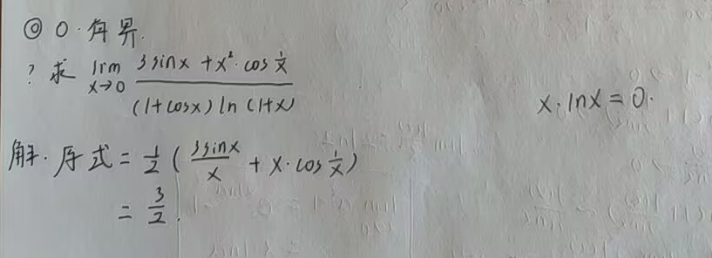 ◎ 0·有界.
? 求 lim x→0 (3sinx + x²·cos 1/x) / ((1+cosx) ln(1+x)
x·lnx = 0.
解. 原式 = 1/2 ( 3sinx/x + x·cos 1/x )
= 3/2.